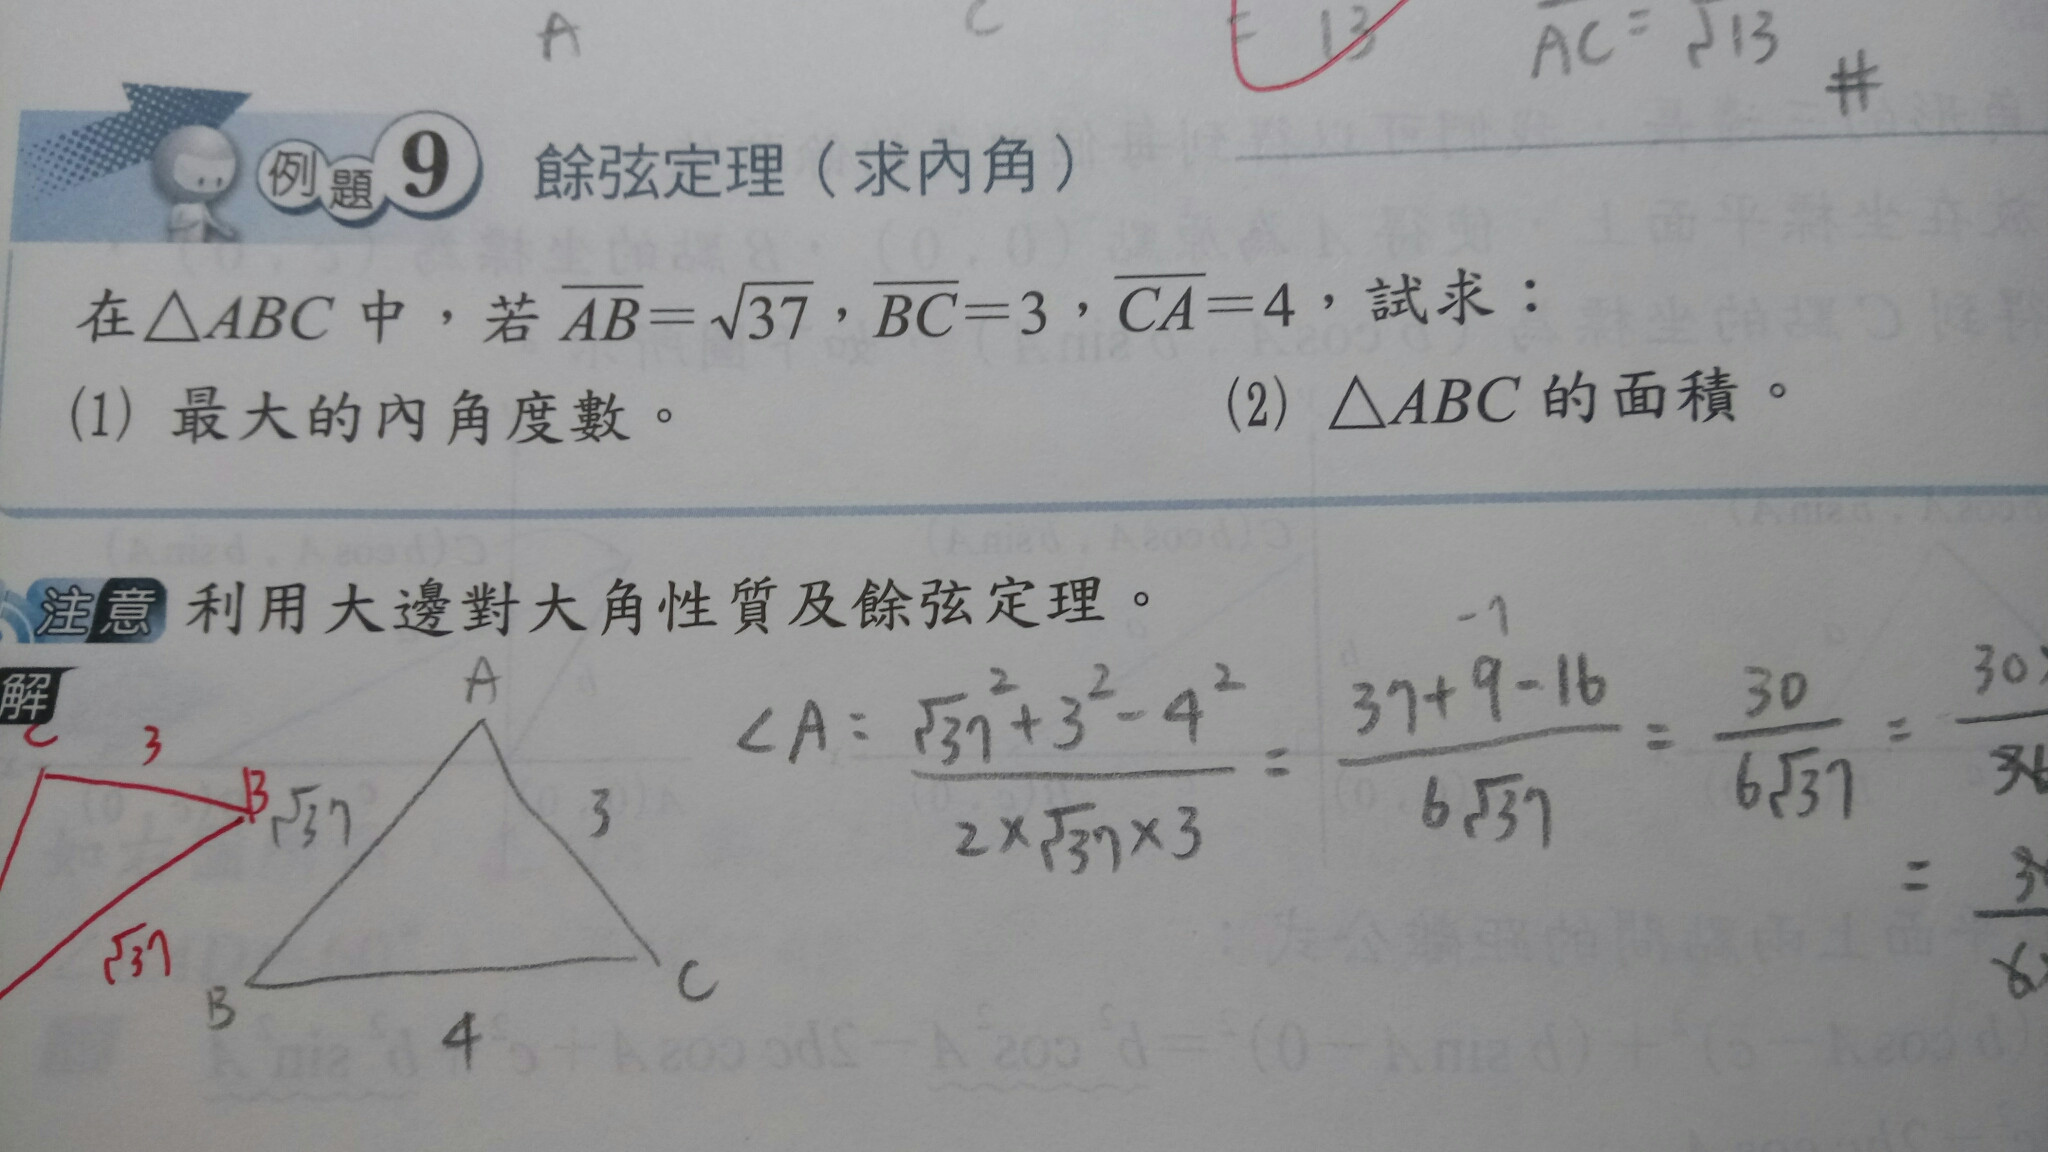 A C = 13 AC = √13 #
例題9 餘弦定理(求內角)
在△ABC 中,若 AB=√37,BC=3,CA=4,試求:
(1) 最大的內角度數。 (2) △ABC 的面積。
注意 利用大邊對大角性質及餘弦定理。
解
C 3 B √37
A √37 3 B 4 C
-7
∠A = (√37² + 3² - 4²)/(2×√37×3) = (37+9-16)/(6√37) = 30/(6√37) =
=